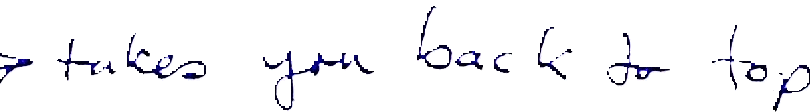 → takes you back to top